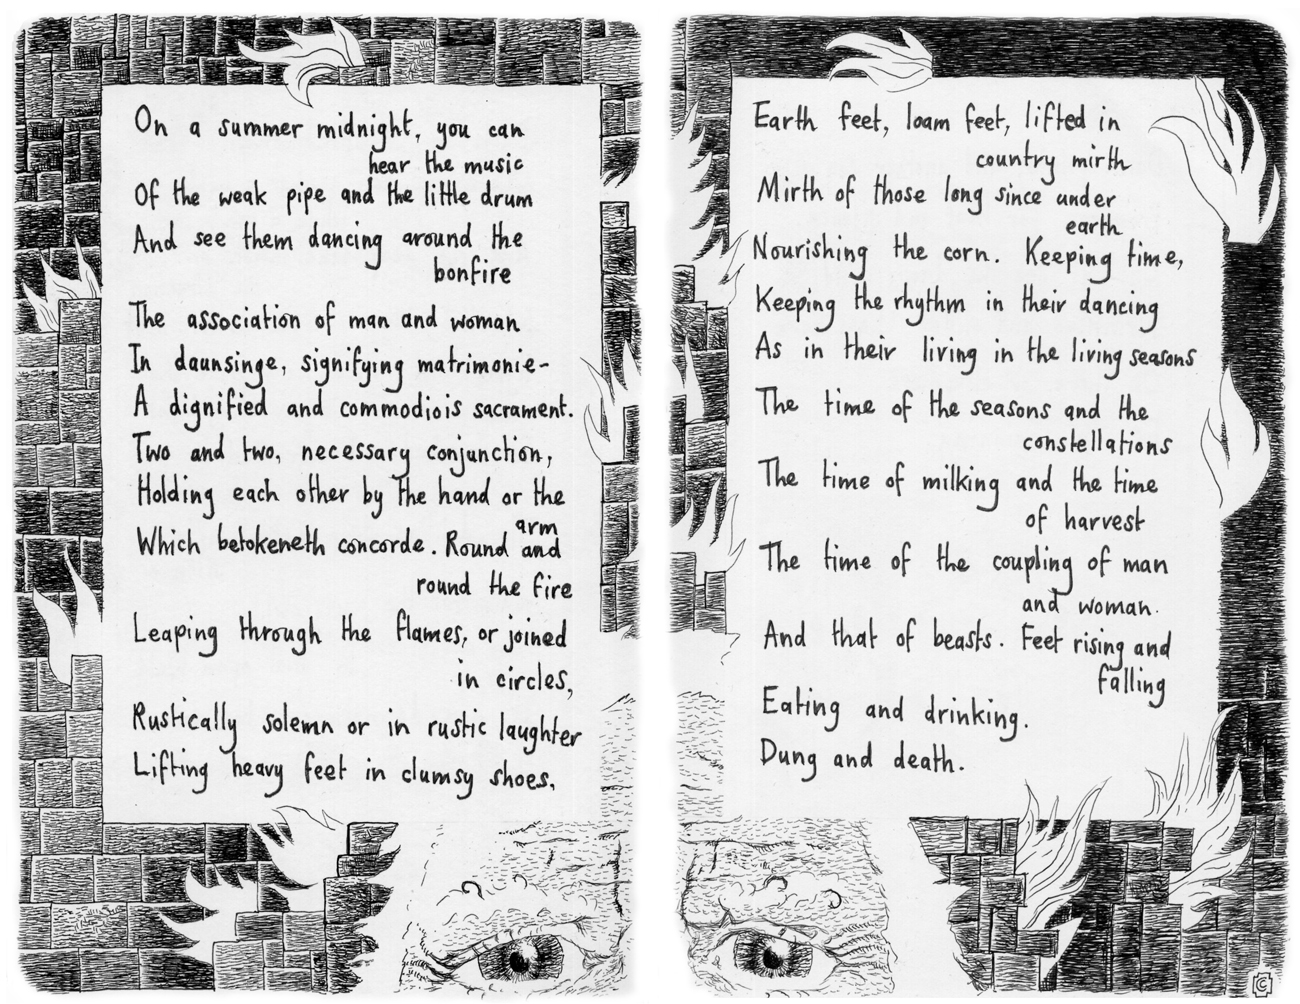 On a summer midnight, you can
hear the music
Of the weak pipe and the little drum
And see them dancing around the
bonfire
The association of man and woman
In daunsinge, signifying matrimonie-
A dignified and commodiois sacrament.
Two and two, necessary conjunction,
Holding each other by the hand or the
arm
Which betokeneth concorde. Round and
round the fire
Leaping through the flames, or joined
in circles,
Rustically solemn or in rustic laughter
Lifting heavy feet in clumsy shoes,
Earth feet, loam feet, lifted in
country mirth
Mirth of those long since under
earth
Nourishing the corn. Keeping time,
Keeping the rhythm in their dancing
As in their living in the living seasons
The time of the seasons and the
constellations
The time of milking and the time
of harvest
The time of the coupling of man
and woman.
And that of beasts. Feet rising and
falling
Eating and drinking.
Dung and death.
C